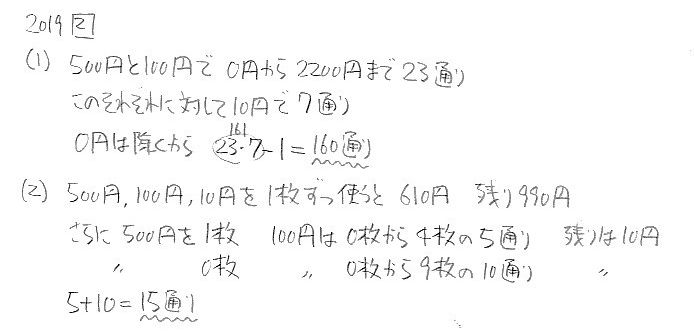 2019 2
(1) 500円と100円で 0円から2200円まで23通り
このそれぞれに対して10円で7通り
0円は除くから 23・7-1=160通り
161
(2) 500円,100円,10円を1枚ずつ使うと 610円 残り990円
さらに500円を1枚 100円は0枚から4枚の5通り 残りは10円
〃 0枚 〃 0枚から9枚の10通り 〃
5+10=15通り